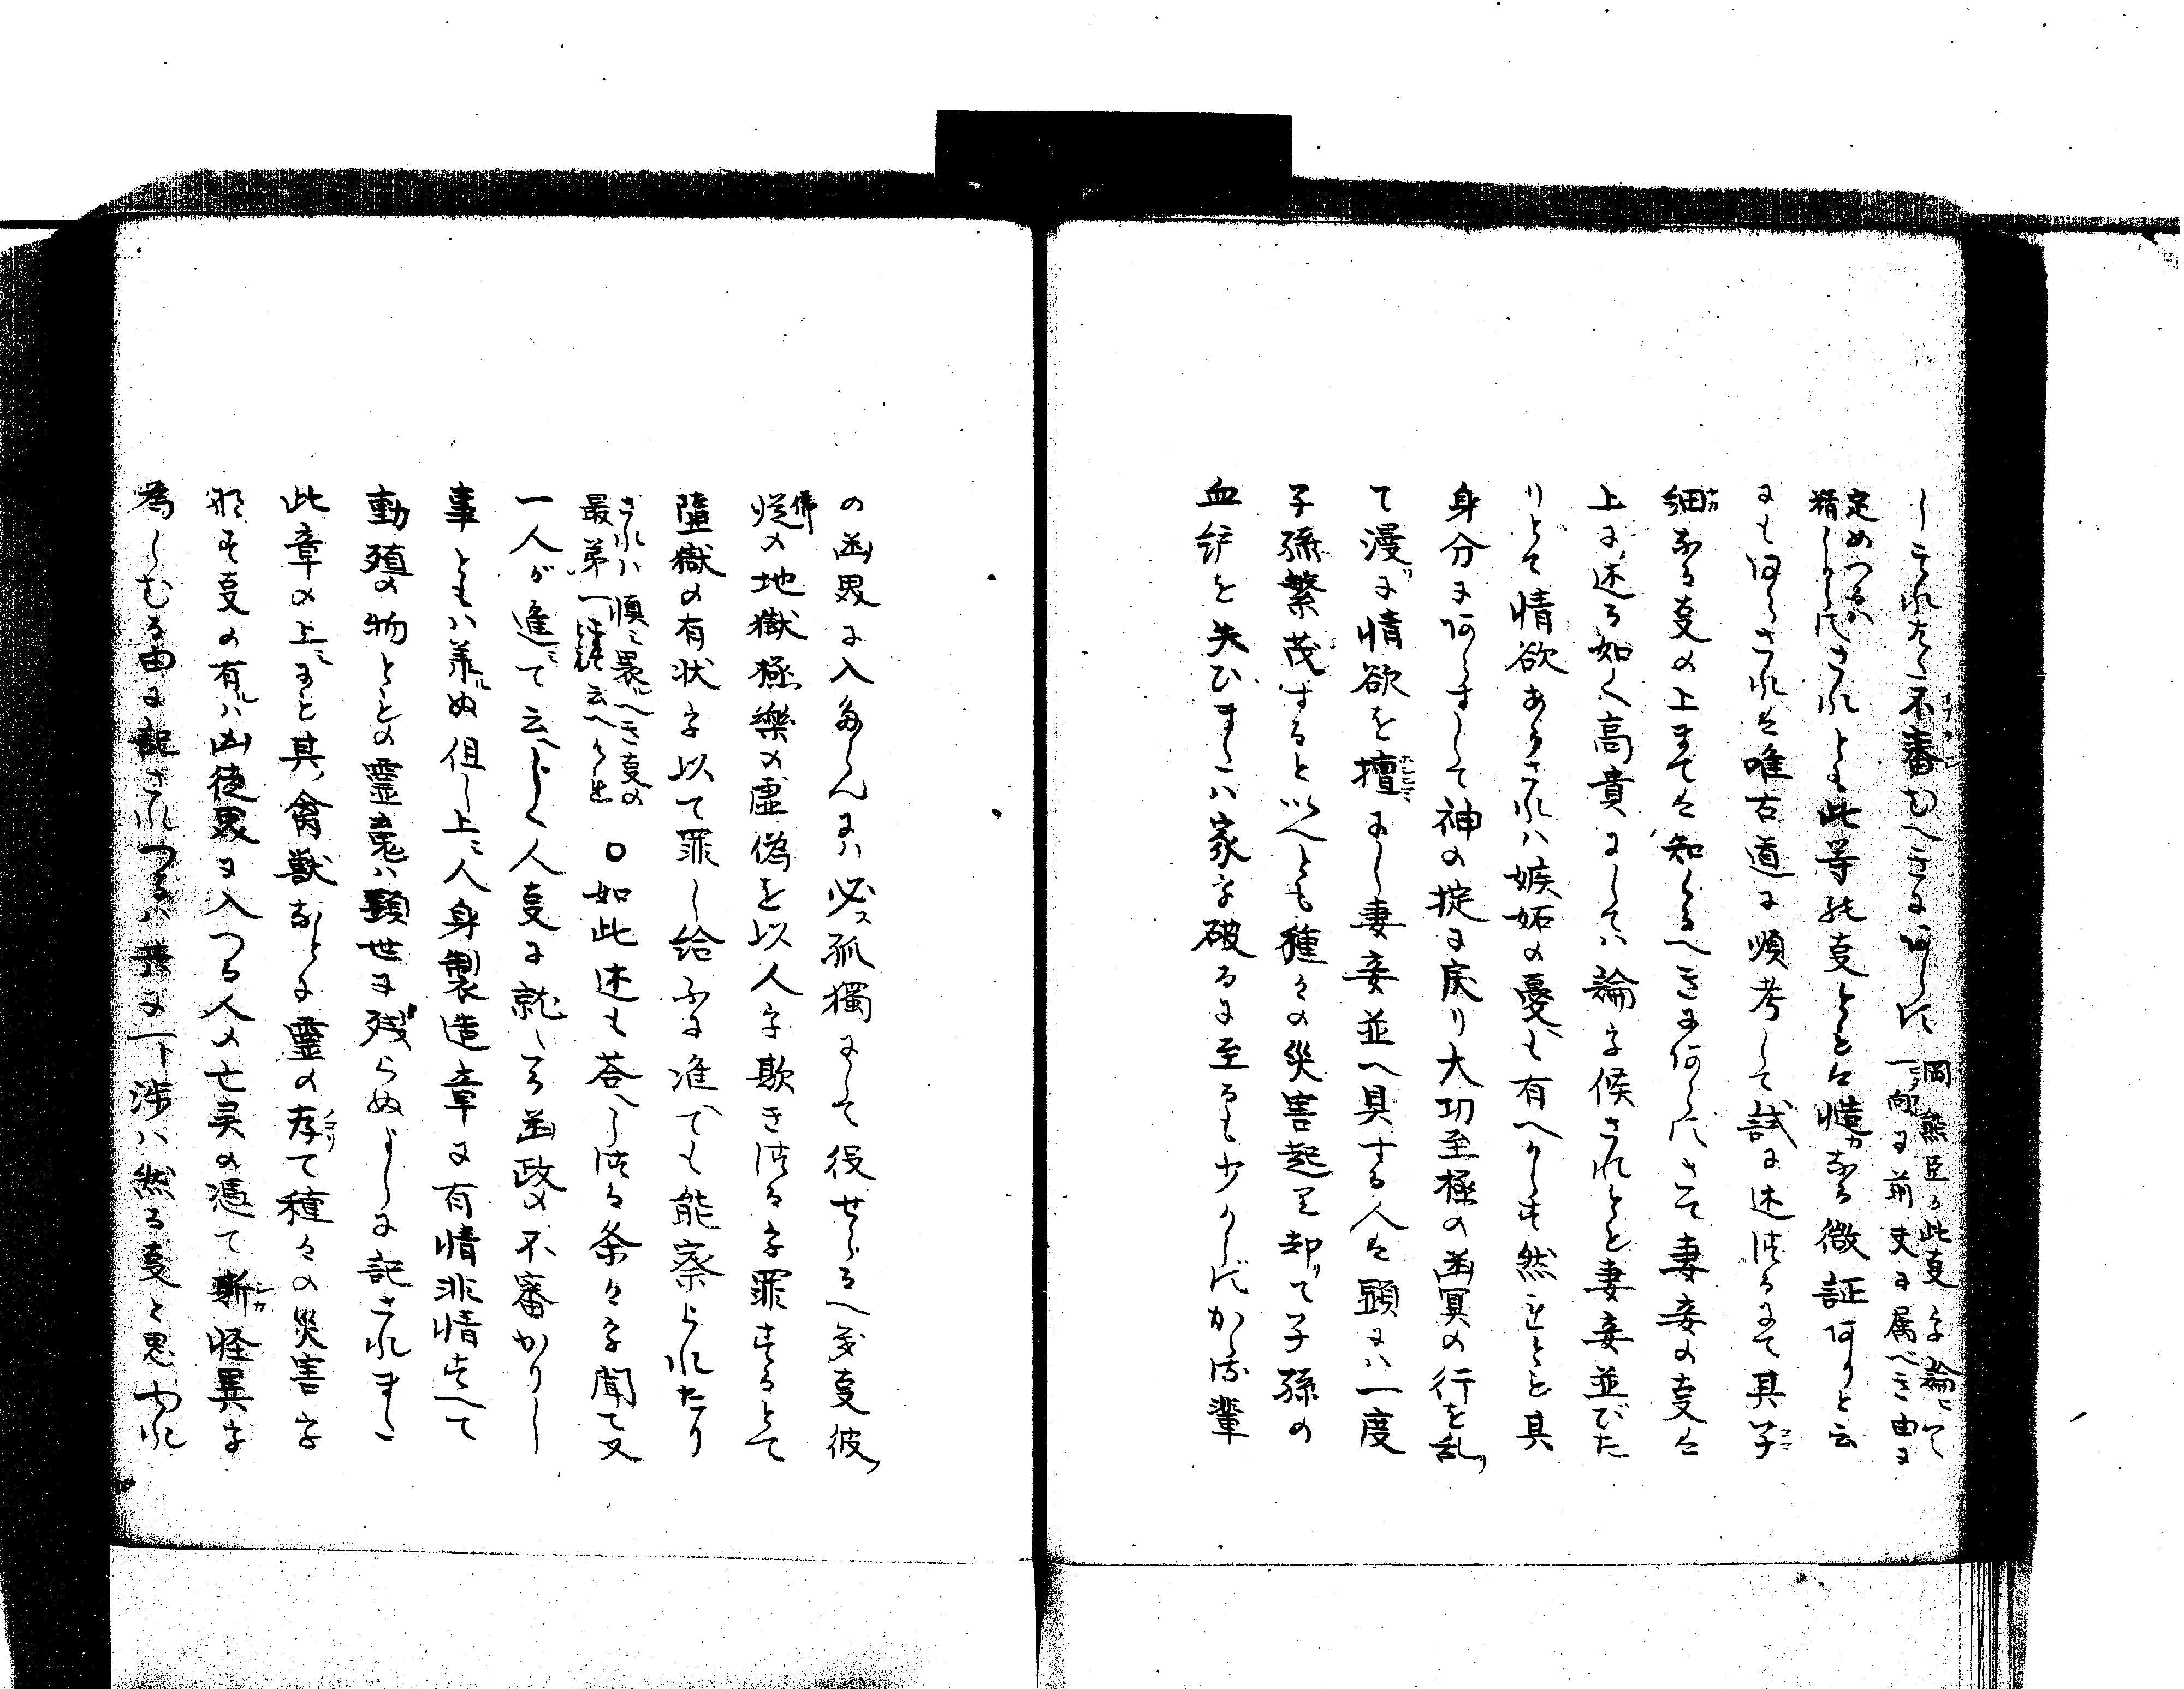 しこれたゝ不審むへきにあらす 岡熊臣か此事を論して
一向に前夫に属べき由に
定めつるハ
精しからすされとも此等の事ともは慥なる徴証ありと云
にもあらされは唯古道に順考して試に述はるにて其子
細なる事の上まては知らるへきにあらすさて妻妾の事は
上に述る如く高貴にしてハ論を候されとも妻妾並びた
りとて情欲あらされハ嫉妬の憂も有へからす然れとも其
身分にあらすして神の掟に戻り大切至極の幽冥の行を乱り
て漫りに情欲を擅にし妻妾並へ具する人は顕にハ一度
子孫繁茂すると以へとも種々の災害起て却て子孫の
血統を失ひまたハ家を破るに至るも少からすかゝる輩
の幽界に入らんにハ必ス孤獨にして役せらるへき事彼
佛説の地獄極樂の虚偽を以人を欺きはるを罪するとて
堕獄の有状を以て罪し給ふに准ても能察られたり
されハ慎ミ畏ルへき事の
最第一 云へくも ○如此述も答へしはる条々を聞て又
一人が進ミて云へらく人事に就ける幽政の不審かりし
事ともハ兼ぬ但し上ニ人身製造章に有情非情すへて
動殖の物ともの霊魂ハ顕世に残らぬよしに記されまた
此章の上ニも其禽獣なとに霊の存りて種々の災害を
形す事の有ルハ凶徒界に入つる人の亡灵の憑て斯カ怪異を
為しむる由に記されつるハ共に一ト渉ハ然る事と思ゆれ